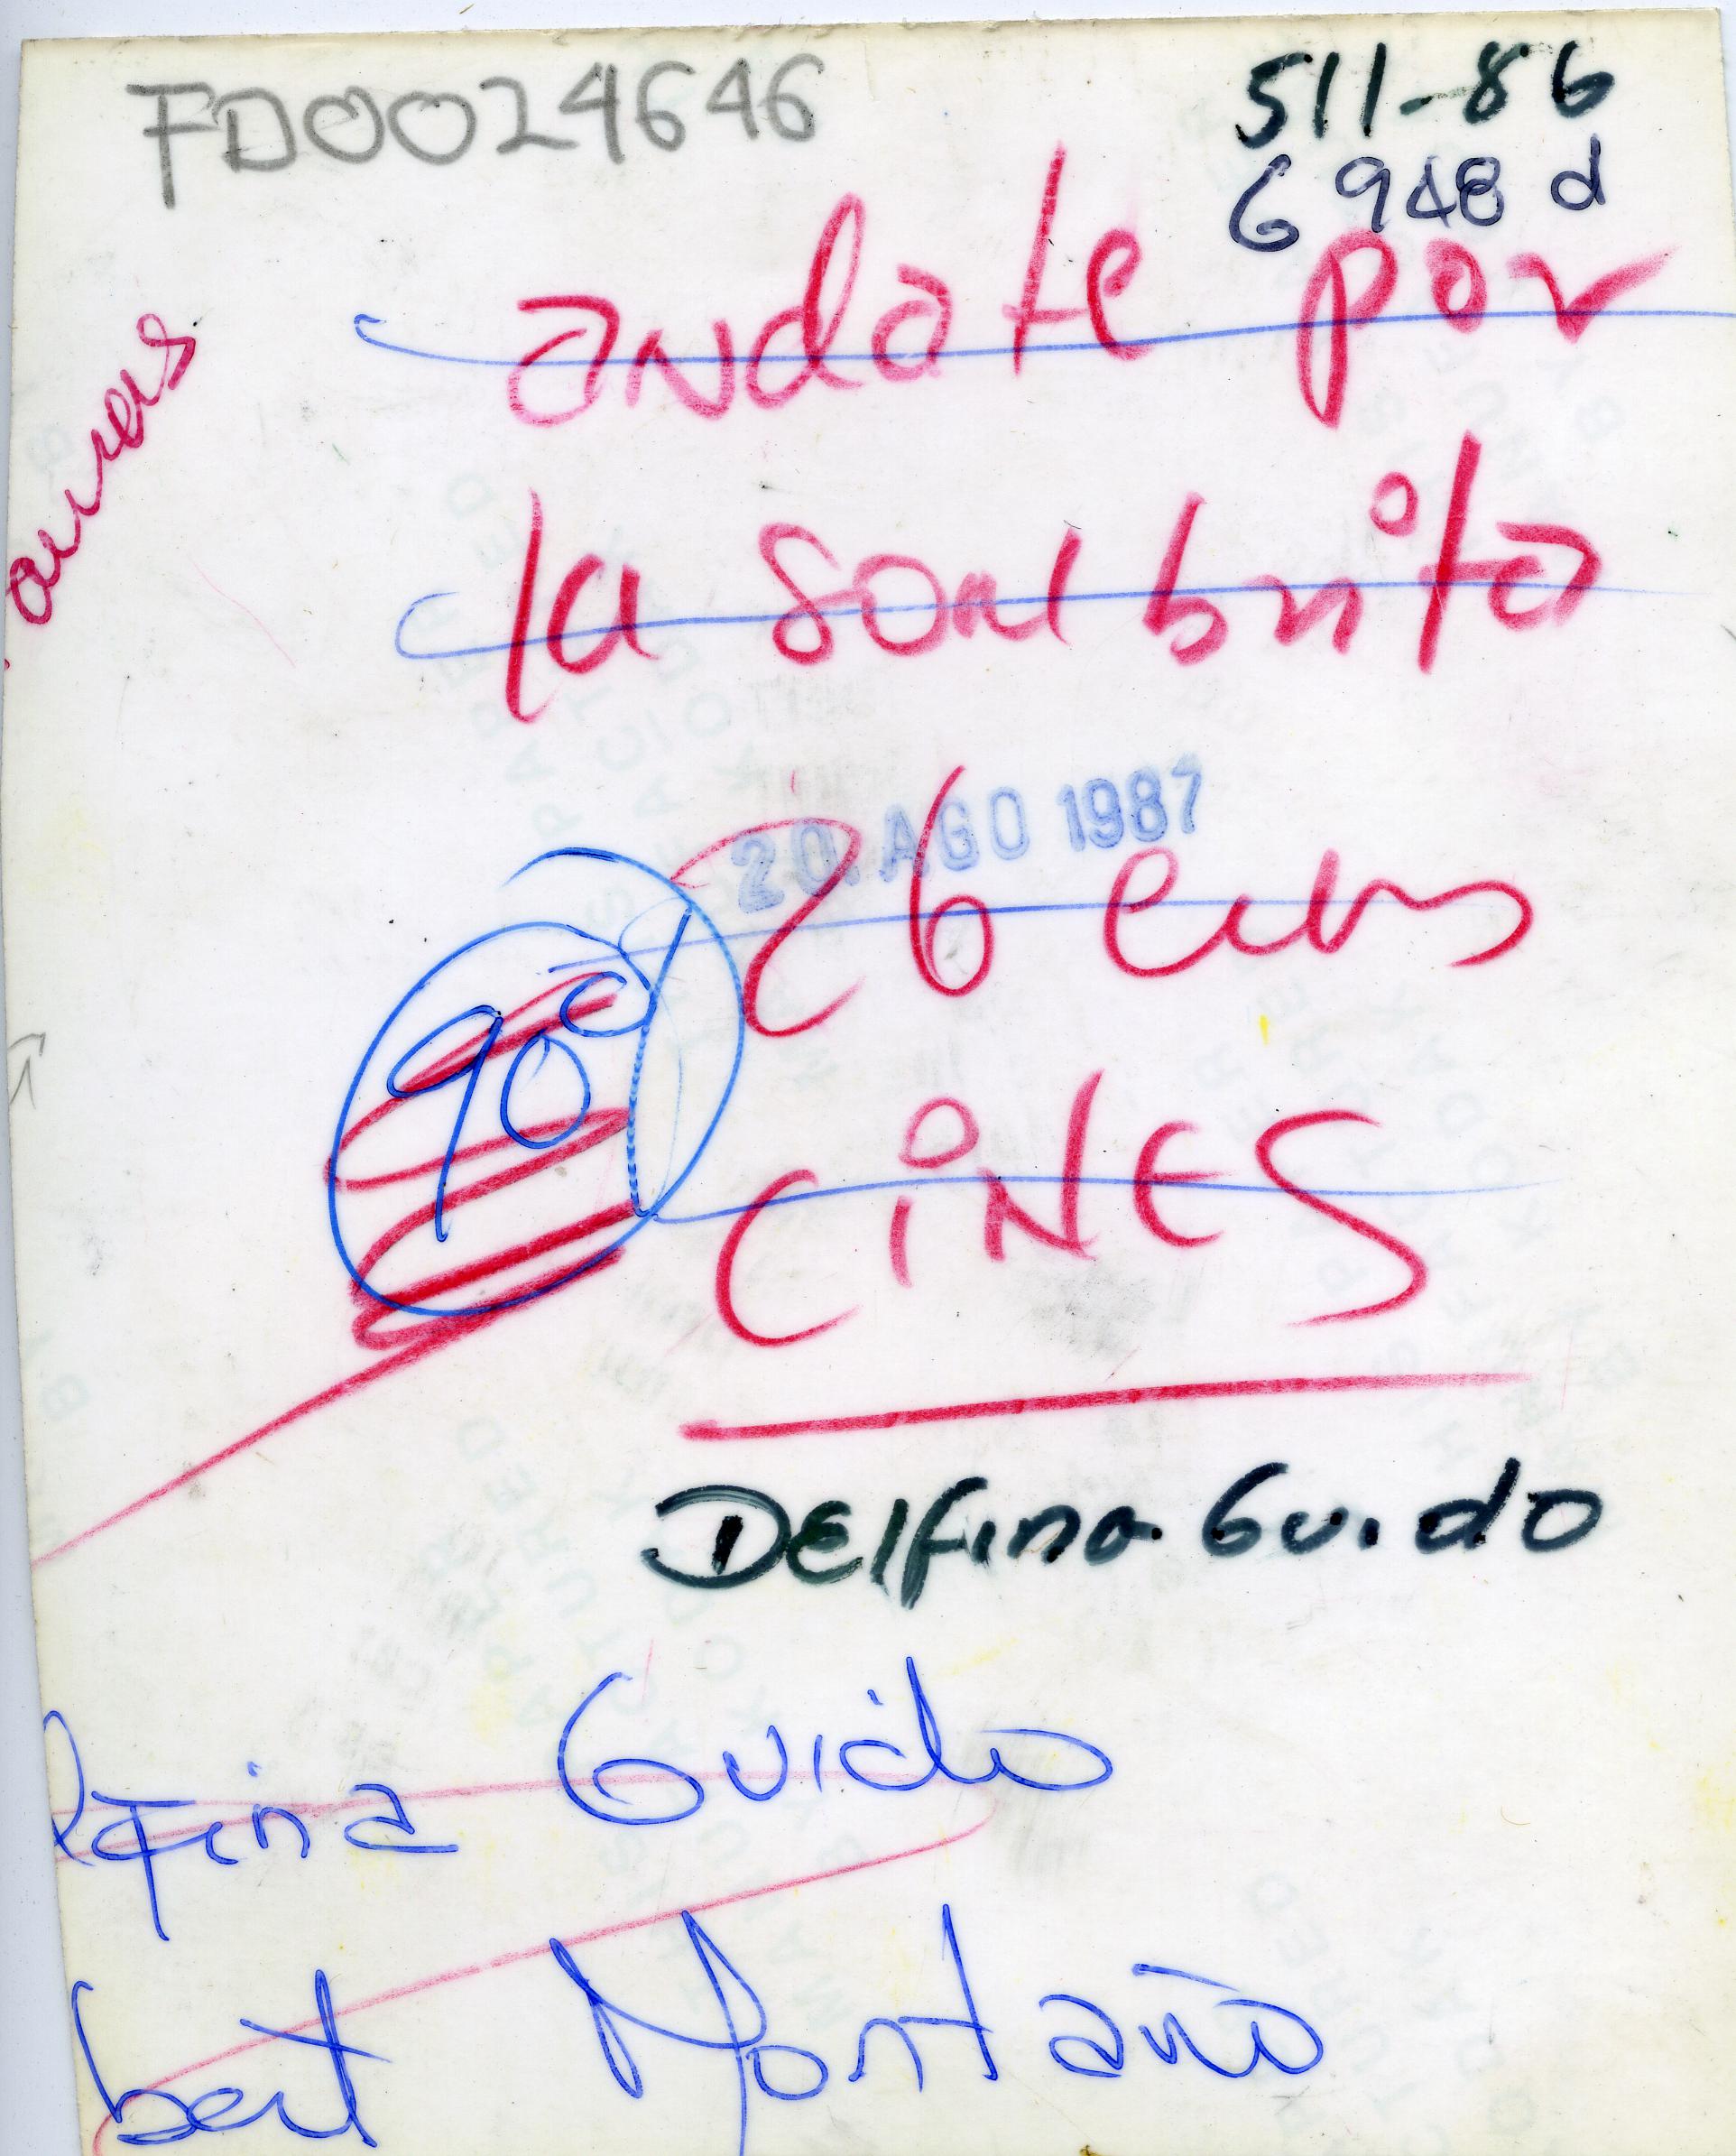 FD0024646
511-86
6948 d
andate por
la sombrita
20. AGO 1987
26 cms
90%
CINES
DElfina Guido
lfina Guido
bert Montaño